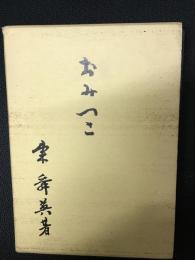 おみつこ
栄舜英著